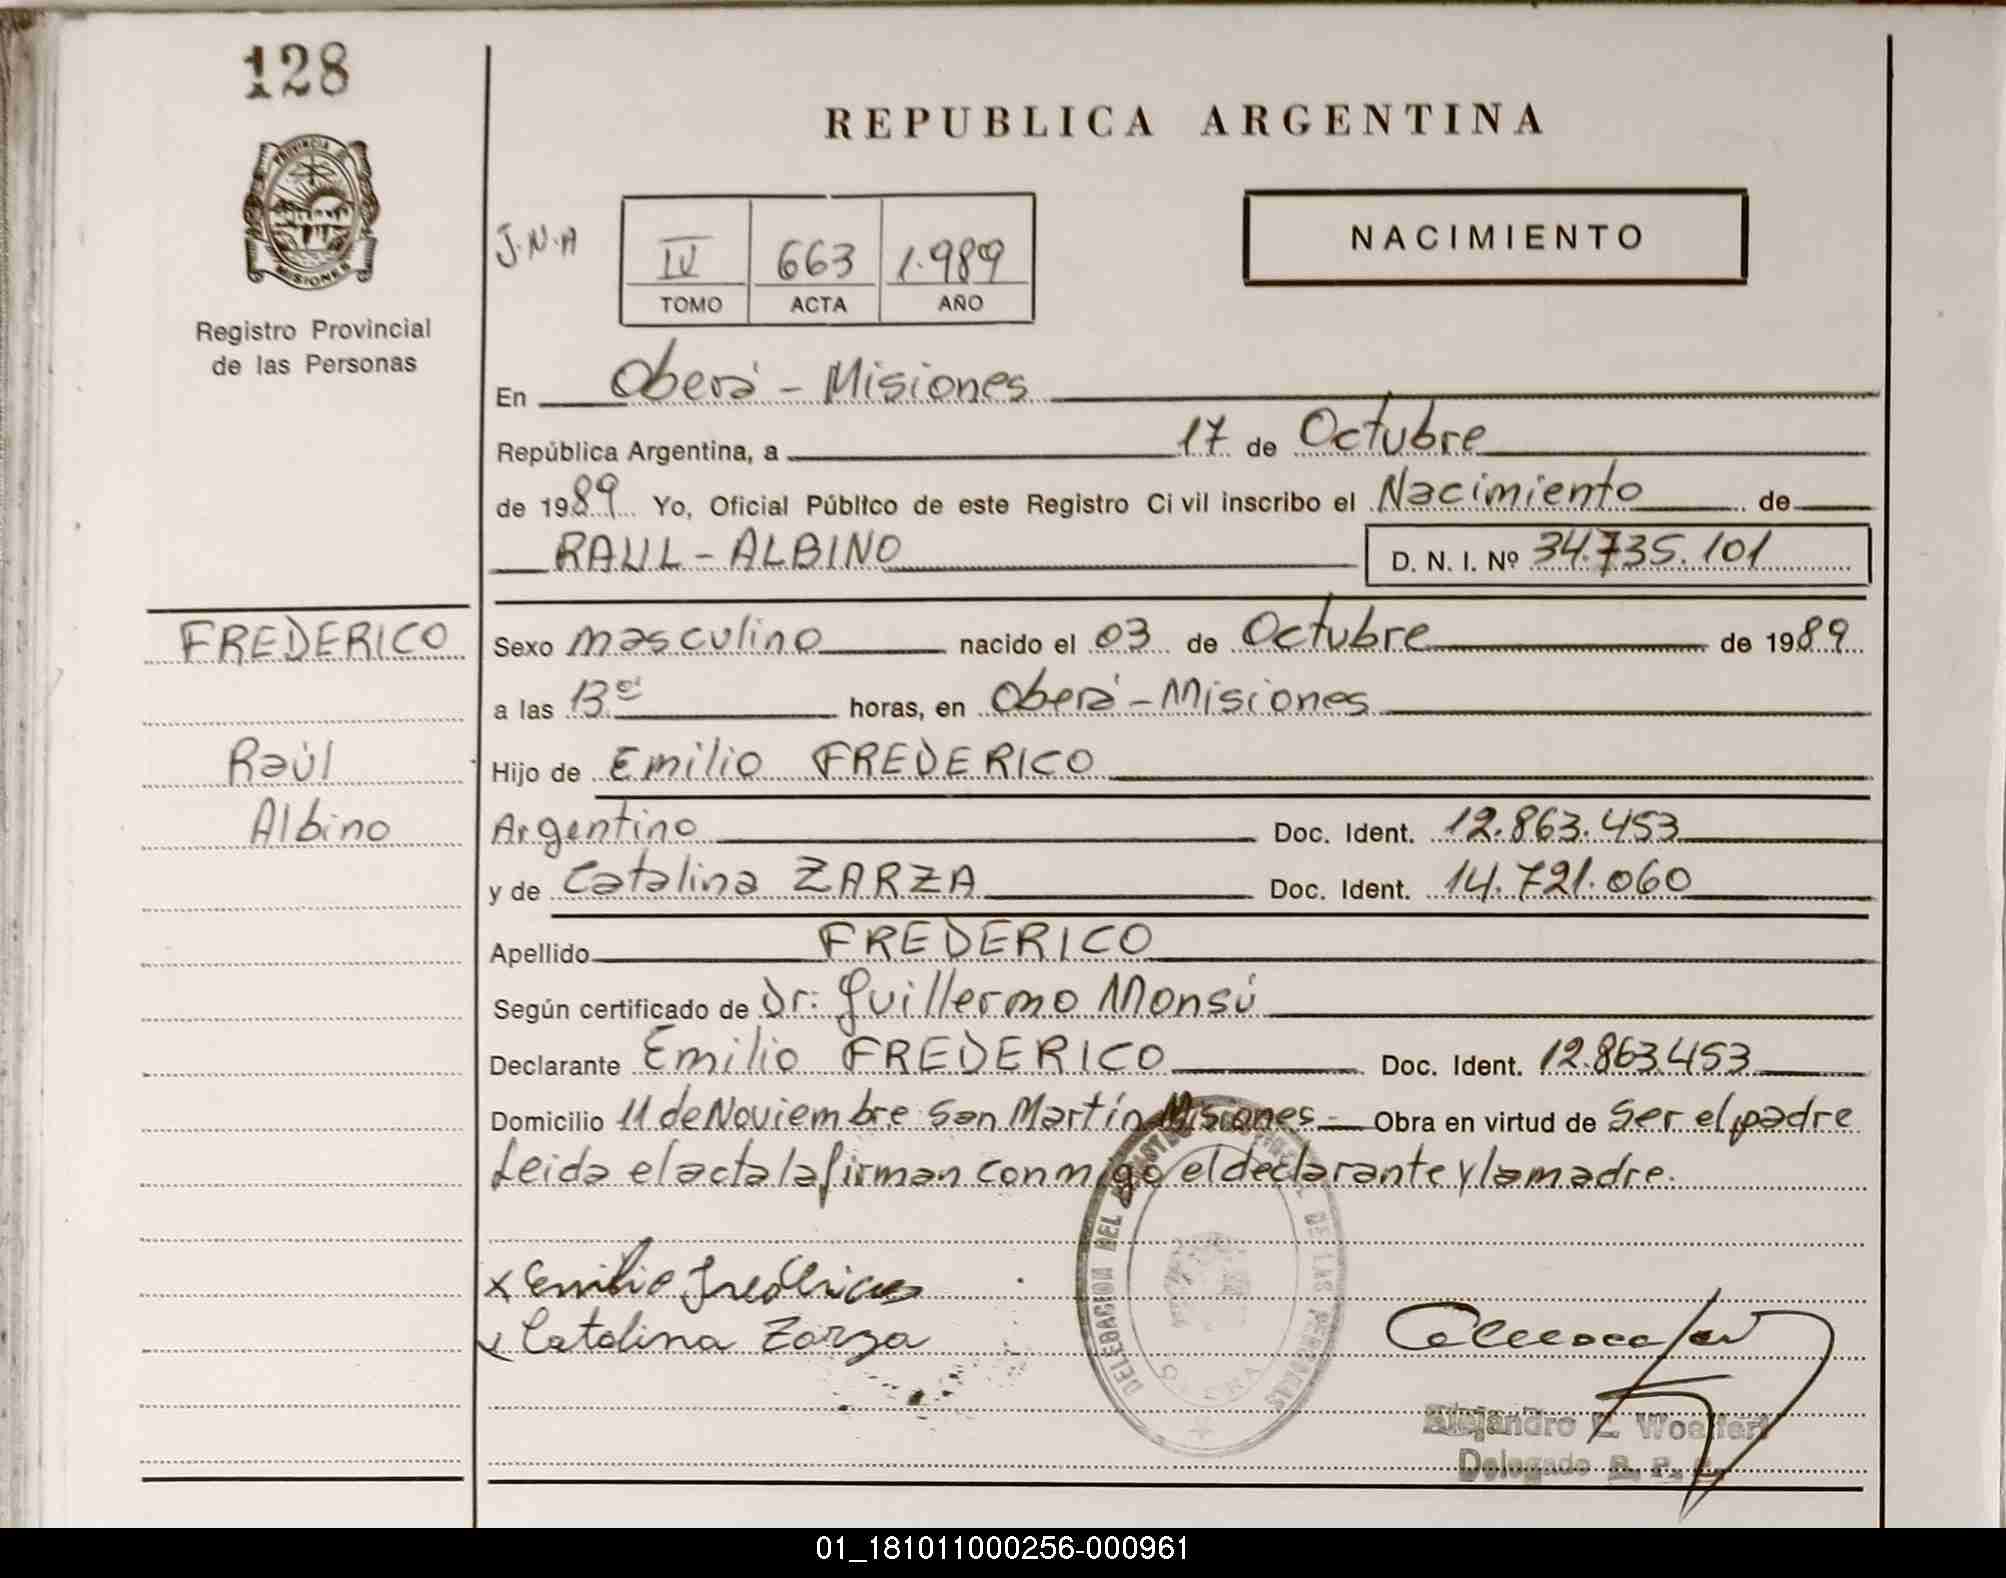 128
REPUBLICA ARGENTINA
PROVINCIA DE
MISIONES
Registro Provincial
de las Personas
J.N.A
IV 663 1.989
TOMO ACTA AÑO
NACIMIENTO
En Oberá - Misiones
República Argentina, a 17 de Octubre
de 1989 Yo, Oficial Público de este Registro Civil inscribo el Nacimiento de
RAUL - ALBINO D. N. I. Nº 34.735.101
FREDERICO
Sexo masculino nacido el 03 de Octubre de 1989
a las 13 horas, en Oberá - Misiones
Raúl
Hijo de Emilio FREDERICO
Albino
Argentino Doc. Ident. 12.863.453
y de Catalina ZARZA Doc. Ident. 14.721.060
Apellido FREDERICO
Según certificado de Dr: Guillermo Monsú
Declarante Emilio FREDERICO Doc. Ident. 12.863.453
Domicilio 11 de Noviembre San Martín Misiones - Obra en virtud de ser el padre
Leida el acta la firman conmigo el declarante y la madre.
x Emilio Frederico
x Catalina Zarza
DELEGACION DEL DE LAS PERSONAS
OBERA
Alejandro E. Woelfert
Delegado R. P. P.
01_181011000256-000961